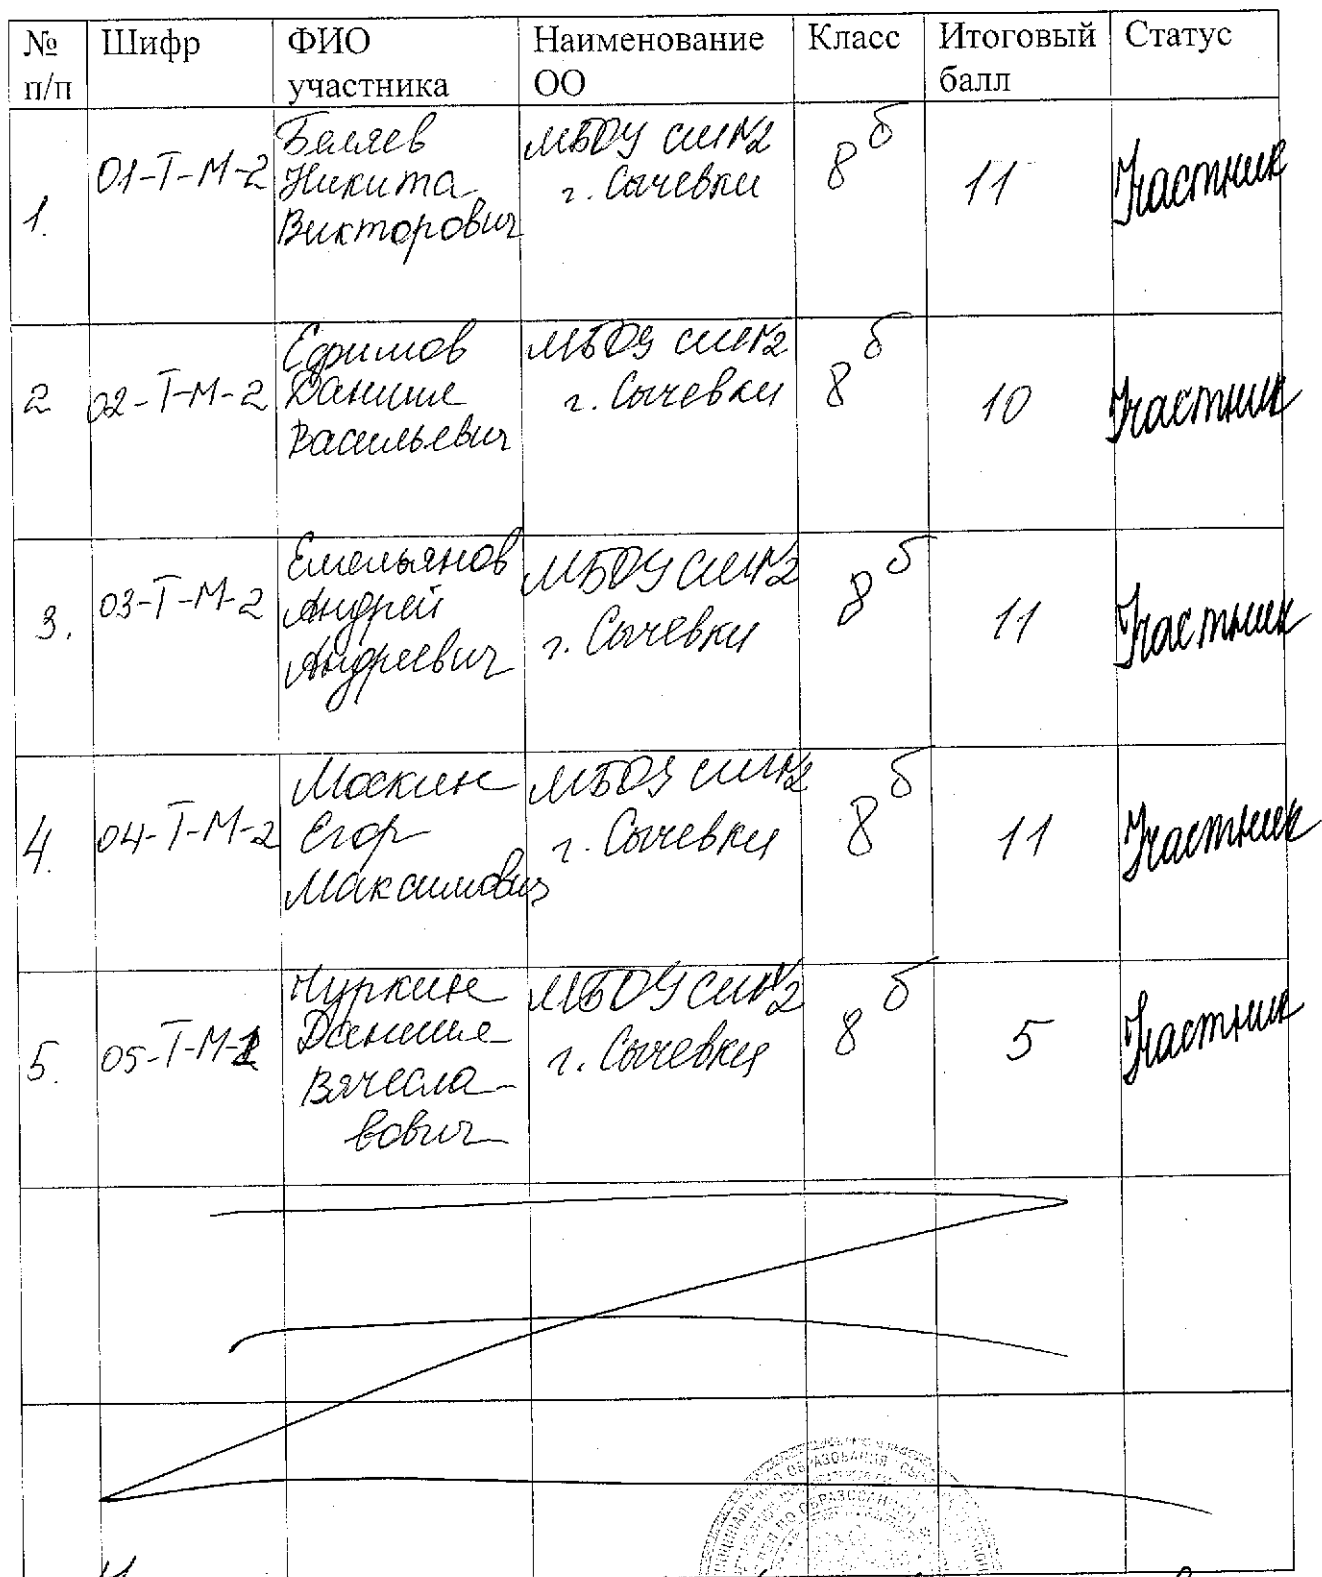 № п/п Шифр ФИО участника Наименование ОО Класс Итоговый балл Статус
1. 01-Т-М-2 Беляев Никита Викторович МБОУ СШ№2 г. Сычевки 8б 11 Участник
2 02-Т-М-2 Ефимов Даниил Васильевич МБОУ СШ№2 г. Сычевки 8б 10 Участник
3. 03-Т-М-2 Емельянов Андрей Андреевич МБОУ СШ№2 г. Сычевки 8б 11 Участник
4. 04-Т-М-2 Москин Егор Максимович МБОУ СШ№2 г. Сычевки 8б 11 Участник
5. 05-Т-М-2 Чуркин Даниил Вячесла-
вович МБОУ СШ№2 г. Сычевки 8б 5 Участник